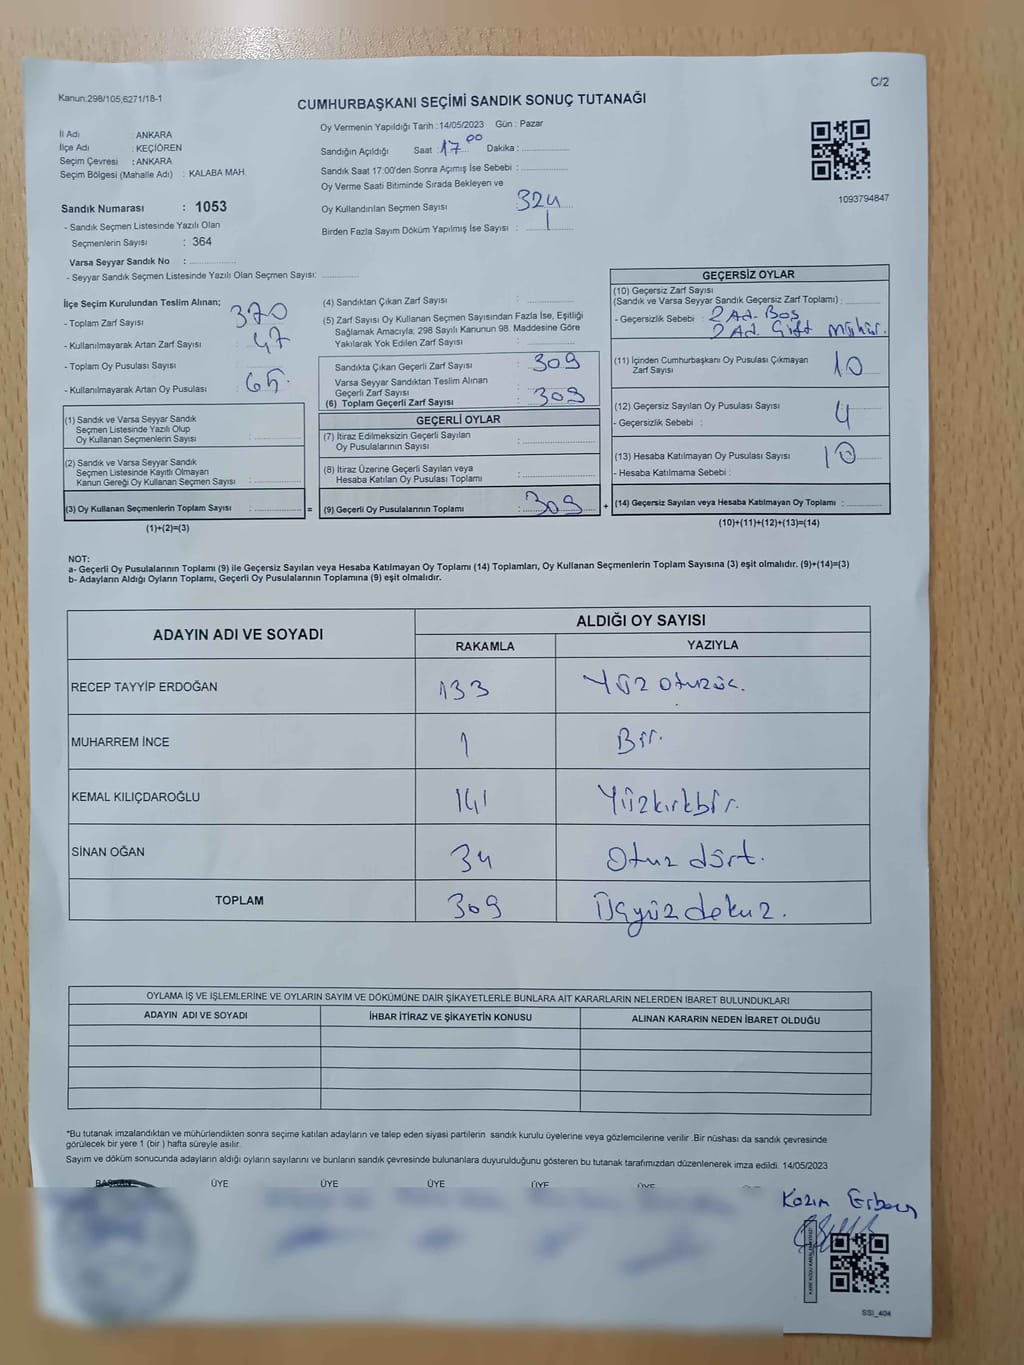 Kanun:298/105,6271/18-1
C/2
CUMHURBAŞKANI SEÇİMİ SANDIK SONUÇ TUTANAĞI
İl Adı : ANKARA
İlçe Adı : KEÇİÖREN
Seçim Çevresi : ANKARA
Seçim Bölgesi (Mahalle Adı) : KALABA MAH.
Sandık Numarası : 1053
- Sandık Seçmen Listesinde Yazılı Olan
Seçmenlerin Sayısı : 364
Varsa Seyyar Sandık No :
- Seyyar Sandık Seçmen Listesinde Yazılı Olan Seçmen Sayısı:
Oy Vermenin Yapıldığı Tarih :14/05/2023 Gün : Pazar
Sandığın Açıldığı Saat : 17 00 Dakika :
Sandık Saat 17:00'den Sonra Açımış İse Sebebi :
Oy Verme Saati Bitiminde Sırada Bekleyen ve
Oy Kullandırılan Seçmen Sayısı : 324
Birden Fazla Sayım Döküm Yapılmış İse Sayısı : 1
1093794847
İlçe Seçim Kurulundan Teslim Alınan;
- Toplam Zarf Sayısı : 370
- Kullanılmayarak Artan Zarf Sayısı : 47
- Toplam Oy Pusulası Sayısı :
- Kullanılmayarak Artan Oy Pusulası : 65.
(1) Sandık ve Varsa Seyyar Sandık
Seçmen Listesinde Yazılı Olup
Oy Kullanan Seçmenlerin Sayısı :
(2) Sandık ve Varsa Seyyar Sandık
Seçmen Listesinde Kayıtlı Olmayan
Kanun Gereği Oy Kullanan Seçmen Sayısı :
(3) Oy Kullanan Seçmenlerin Toplam Sayısı : =
(1)+(2)=(3)
(4) Sandıktan Çıkan Zarf Sayısı :
(5) Zarf Sayısı Oy Kullanan Seçmen Sayısından Fazla İse, Eşitliği
Sağlamak Amacıyla; 298 Sayılı Kanunun 98. Maddesine Göre
Yakılarak Yok Edilen Zarf Sayısı :
Sandıkta Çıkan Geçerli Zarf Sayısı : 309
Varsa Seyyar Sandıktan Teslim Alınan
Geçerli Zarf Sayısı
(6) Toplam Geçerli Zarf Sayısı : 309
GEÇERLİ OYLAR
(7) İtiraz Edilmeksizin Geçerli Sayılan
Oy Pusulalarının Sayısı :
(8) İtiraz Üzerine Geçerli Sayılan veya
Hesaba Katılan Oy Pusulası Toplamı :
(9) Geçerli Oy Pusulalarının Toplamı : 309 +
GEÇERSİZ OYLAR
(10) Geçersiz Zarf Sayısı
(Sandık ve Varsa Seyyar Sandık Geçersiz Zarf Toplamı) :
- Geçersizlik Sebebi : 2 Ad. Boş
2 Ad. Çift mühür.
(11) İçinden Cumhurbaşkanı Oy Pusulası Çıkmayan
Zarf Sayısı : 10
(12) Geçersiz Sayılan Oy Pusulası Sayısı : 4
- Geçersizlik Sebebi :
(13) Hesaba Katılmayan Oy Pusulası Sayısı : 10
- Hesaba Katılmama Sebebi :
(14) Geçersiz Sayılan veya Hesaba Katılmayan Oy Toplamı :
(10)+(11)+(12)+(13)=(14)
NOT:
a- Geçerli Oy Pusulalarının Toplamı (9) ile Geçersiz Sayılan veya Hesaba Katılmayan Oy Toplamı (14) Toplamları, Oy Kullanan Seçmenlerin Toplam Sayısına (3) eşit olmalıdır. (9)+(14)=(3)
b- Adayların Aldığı Oyların Toplamı, Geçerli Oy Pusulalarının Toplamına (9) eşit olmalıdır.
ADAYIN ADI VE SOYADI
ALDIĞI OY SAYISI
RAKAMLA YAZIYLA
RECEP TAYYİP ERDOĞAN 133 Yüz otuzüç.
MUHARREM İNCE 1 Bir.
KEMAL KILIÇDAROĞLU 141 Yüzkırkbir.
SİNAN OĞAN 34 Otuz dört.
TOPLAM 309 Üçyüz dokuz.
OYLAMA İŞ VE İŞLEMLERİNE VE OYLARIN SAYIM VE DÖKÜMÜNE DAİR ŞİKAYETLERLE BUNLARA AİT KARARLARIN NELERDEN İBARET BULUNDUKLARI
ADAYIN ADI VE SOYADI İHBAR İTİRAZ VE ŞİKAYETİN KONUSU ALINAN KARARIN NEDEN İBARET OLDUĞU
*Bu tutanak imzalandıktan ve mühürlendikten sonra seçime katılan adayların ve talep eden siyasi partilerin sandık kurulu üyelerine veya gözlemcilerine verilir .Bir nüshası da sandık çevresinde
görülecek bir yere 1 (bir ) hafta süreyle asılır.
Sayım ve döküm sonucunda adayların aldığı oyların sayılarını ve bunların sandık çevresinde bulunanlara duyurulduğunu gösteren bu tutanak tarafımızdan düzenlenerek imza edildi. 14/05/2023
BAŞKAN ÜYE ÜYE ÜYE ÜYE ÜYE
Kazım
SSI_404